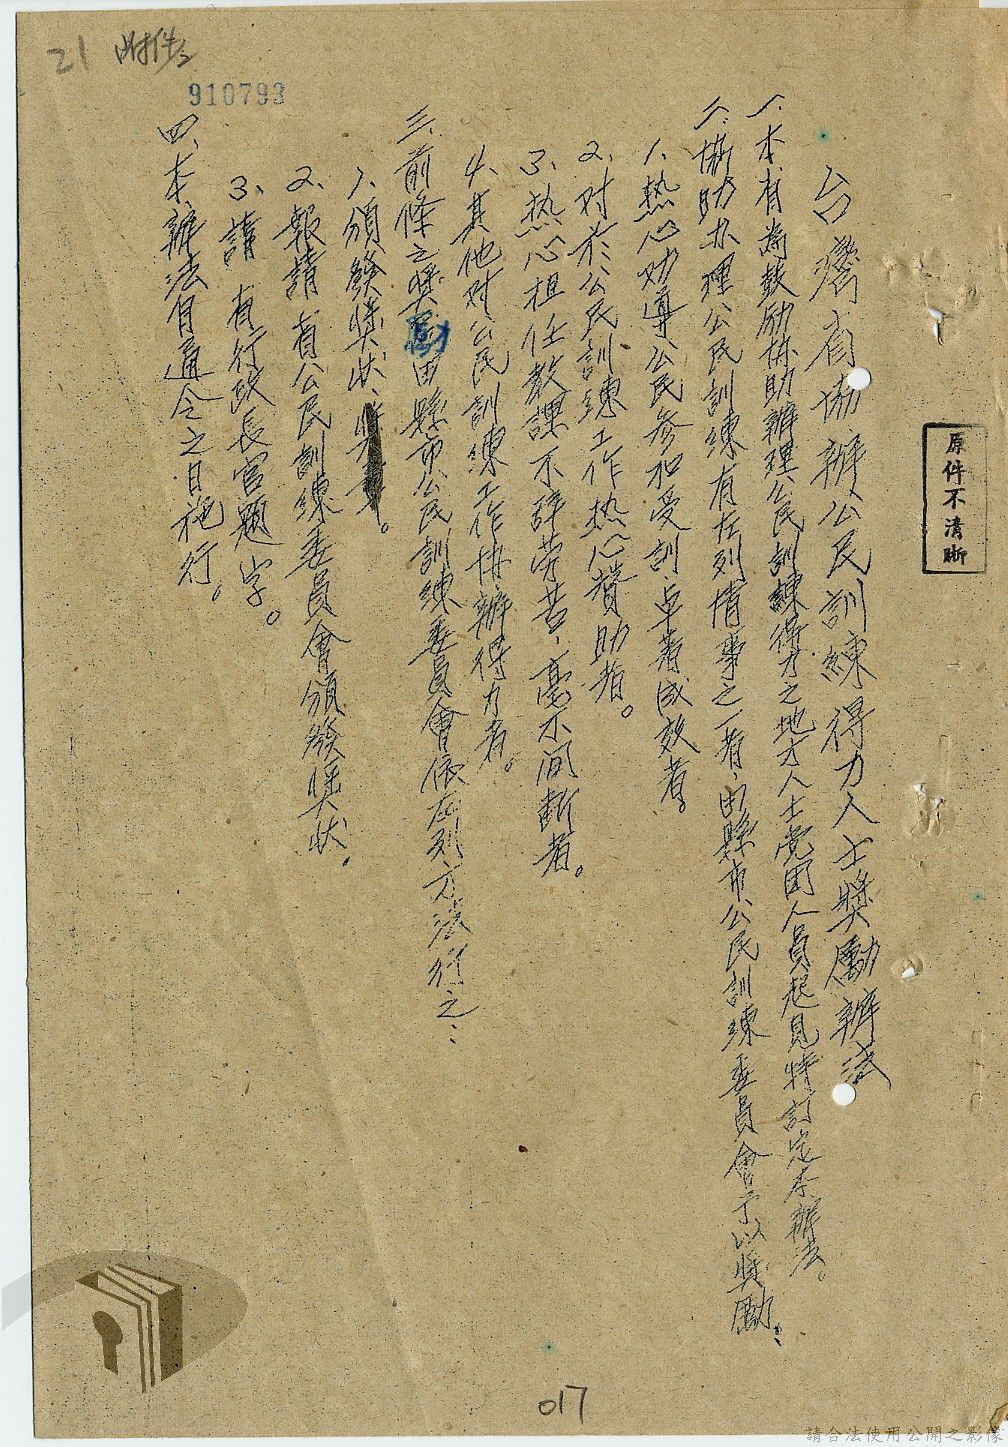 台灣省協辦公民訓練得力人士獎勵辦法
一、本省為鼓励协助辦理公民訓練得力之地方人士党团人員起見特訂定本辦法。
二、協助办理公民訓練有左列情事之一者，由縣市公民訓練委員會予以獎勵：
1、热心劝導公民參加受訓，卓著成效者。
2、对於公民訓練工作热心贊助者。
3、热心担任教課不辞劳苦，毫不间断者。
4、其他对公民訓練工作协辦得力者。
三、前條之獎勵由縣市公民訓練委員會依左列方法行之：
1、頒發獎狀。
2、報請省公民訓練委員會頒發獎狀。
3、請省行政長官題字。
四、本辦法自通令之日施行。
原件不清晰
910793
21
附件2
017
請合法使用公開之影像